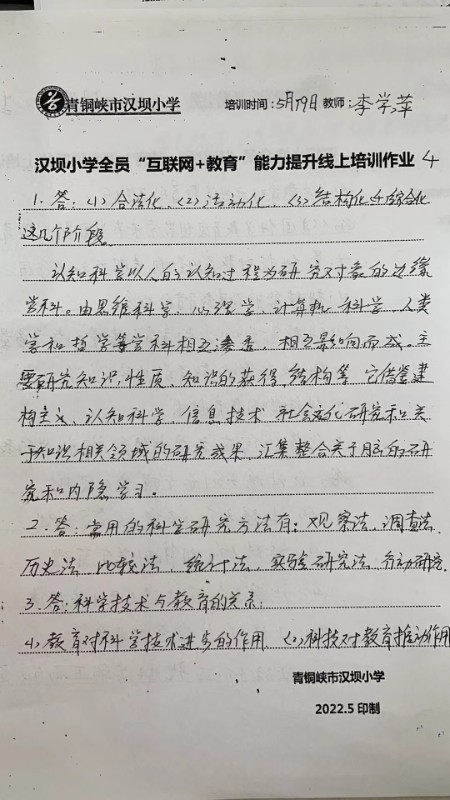 青铜峡市汉坝小学 培训时间：5月19日 教师：李学萍
汉坝小学全员“互联网+教育”能力提升线上培训作业 4
1. 答：(1) 合法化、(2) 活动化、(3) 结构化 (4) 综合化
这几个阶段
认知科学以人的认知过程为研究对象的边缘
学科。由思维科学、心理学、计算机科学、人类
学和哲学等学科相互渗透，相互影响而成。主
要研究知识性质、知识的获得、结构等 它借鉴建
构主义、认知科学 信息技术 社会文化研究和关
于知识相关领域的研究成果，汇集整合关于脑的研
究和内隐学习。
2. 答：常用的科学研究方法有：观察法、调查法
历史法 比较法、统计法、实验研究法 行动研究
3. 答：科学技术与教育的关系：
(1) 教育对科学技术进步的作用 (2) 科技对教育推动作用
青铜峡市汉坝小学
2022.5 印制